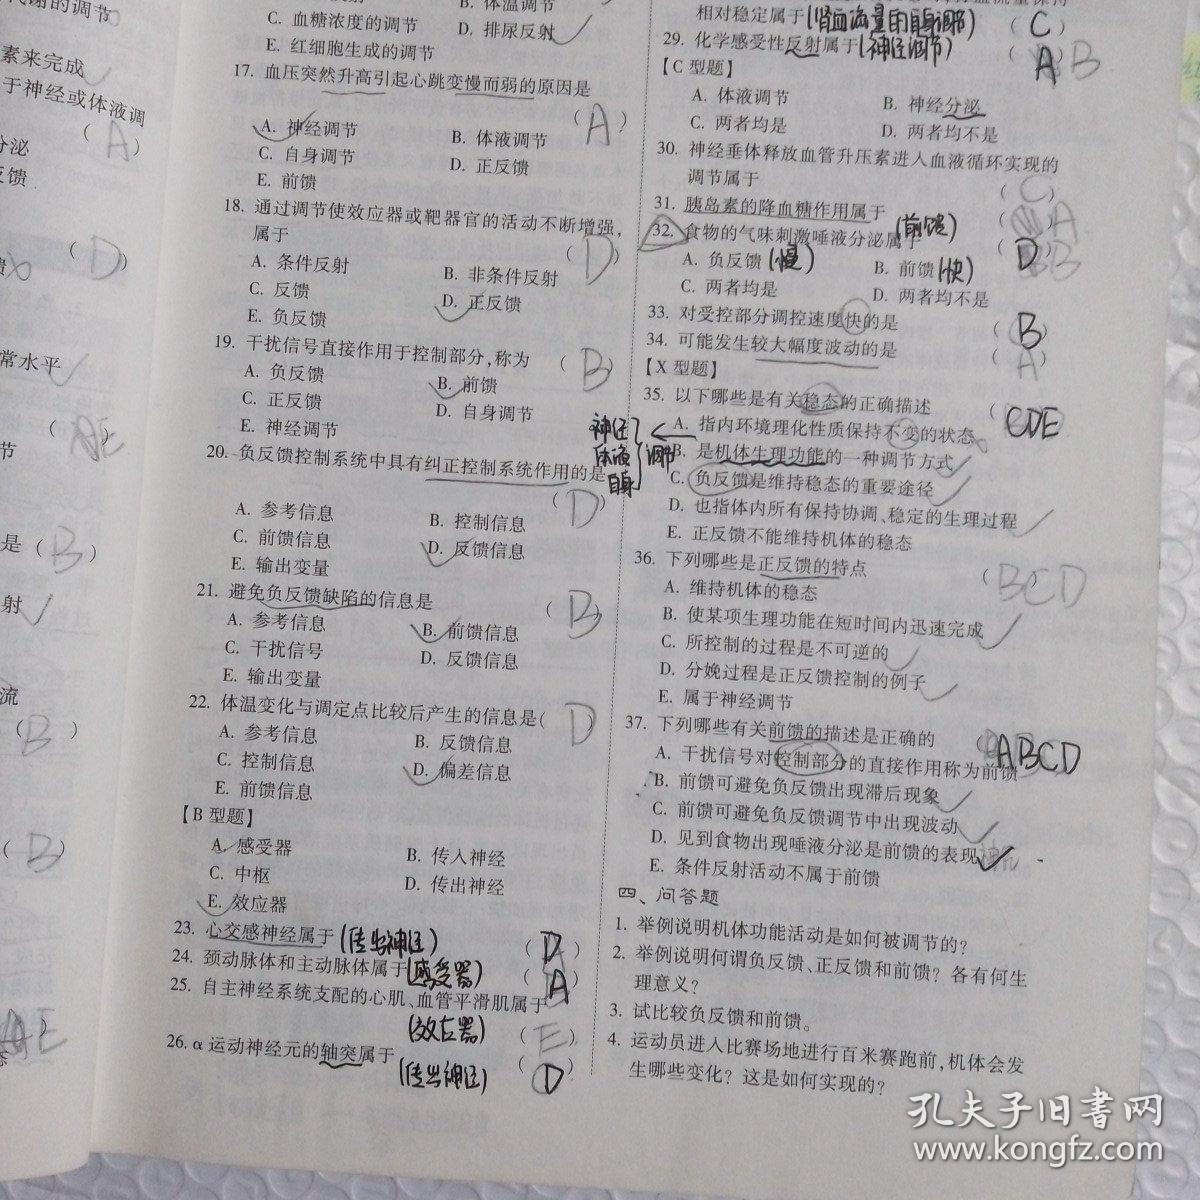 谢的调节
素来完成
于神经或体液调
(A)
分泌
反馈
(D)
常水平
节
是(B)
射
流
(B)
(B)
B. 体温调节
C. 血糖浓度的调节 D. 排尿反射
E. 红细胞生成的调节
17. 血压突然升高引起心跳变慢而弱的原因是
(A)
A. 神经调节 B. 体液调节
C. 自身调节 D. 正反馈
E. 前馈
18. 通过调节使效应器或靶器官的活动不断增强,
属于 (D)
A. 条件反射 B. 非条件反射
C. 反馈 D. 正反馈
E. 负反馈
19. 干扰信号直接作用于控制部分,称为 (B)
A. 负反馈 B. 前馈
C. 正反馈 D. 自身调节
E. 神经调节
20. 负反馈控制系统中具有纠正控制系统作用的是
(D)
A. 参考信息 B. 控制信息
C. 前馈信息 D. 反馈信息
E. 输出变量
21. 避免负反馈缺陷的信息是 (B)
A. 参考信息 B. 前馈信息
C. 干扰信号 D. 反馈信息
E. 输出变量
22. 体温变化与调定点比较后产生的信息是(D)
A. 参考信息 B. 反馈信息
C. 控制信息 D. 偏差信息
E. 前馈信息
【B 型题】
A. 感受器 B. 传入神经
C. 中枢 D. 传出神经
E. 效应器
23. 心交感神经属于(传出神经) (D)
24. 颈动脉体和主动脉体属于(感受器) (A)
25. 自主神经系统支配的心肌、血管平滑肌属于
(效应器) (E)
26. α运动神经元的轴突属于
(传出神经) (D)
相对稳定属于(肾血流量的自身调节) (C)
29. 化学感受性反射属于(神经调节) A B
【C 型题】
A. 体液调节 B. 神经分泌
C. 两者均是 D. 两者均不是
30. 神经垂体释放血管升压素进入血液循环实现的
调节属于 (C)
31. 胰岛素的降血糖作用属于 A
(前馈)
32. 食物的气味刺激唾液分泌属于 D B
A. 负反馈(慢) B. 前馈(快)
C. 两者均是 D. 两者均不是
33. 对受控部分调控速度快的是 (B)
34. 可能发生较大幅度波动的是 (A)
【X 型题】
35. 以下哪些是有关稳态的正确描述 CDE
A. 指内环境理化性质保持不变的状态
神经
体液 调节
自身
B. 是机体生理功能的一种调节方式
C. 负反馈是维持稳态的重要途径
D. 也指体内所有保持协调、稳定的生理过程
E. 正反馈不能维持机体的稳态
36. 下列哪些是正反馈的特点 (BCD
A. 维持机体的稳态
B. 使某项生理功能在短时间内迅速完成
C. 所控制的过程是不可逆的
D. 分娩过程是正反馈控制的例子
E. 属于神经调节
37. 下列哪些有关前馈的描述是正确的 ABCD
A. 干扰信号对控制部分的直接作用称为前馈
B. 前馈可避免负反馈出现滞后现象
C. 前馈可避免负反馈调节中出现波动
D. 见到食物出现唾液分泌是前馈的表现
E. 条件反射活动不属于前馈
四、问答题
1. 举例说明机体功能活动是如何被调节的?
2. 举例说明何谓负反馈、正反馈和前馈? 各有何生
理意义?
3. 试比较负反馈和前馈。
4. 运动员进入比赛场地进行百米赛跑前,机体会发
生哪些变化? 这是如何实现的?
孔夫子旧书网
www.kongfz.com